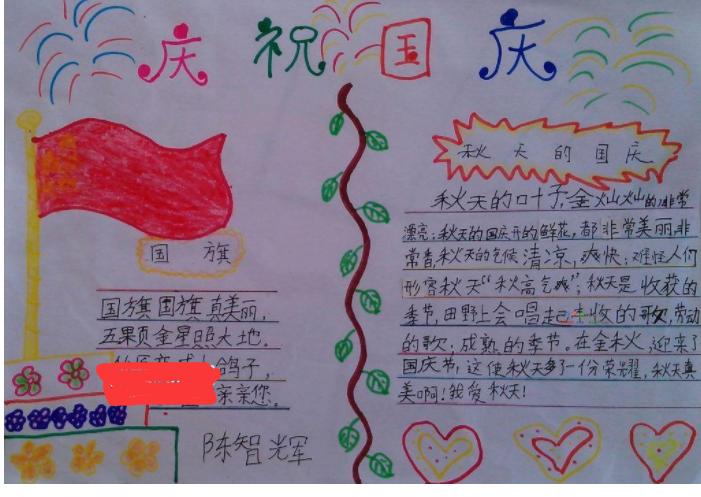 庆祝国庆
国旗
国旗国旗真美丽，
五果页金星照大地。
鸽子，
亲亲您。
陈智光军
秋天的国庆
秋天的叶子，金灿灿的非常
漂亮；秋天的国庆开的鲜花，都非常美丽非
常香，秋天的气候清凉，爽快；难怪人们
形容秋天“秋高气爽”；秋天是收获的
季节，田野上会唱起丰收的歌，劳动
的歌；成熟的季节。在金秋，迎来了
国庆节，这使秋天多了一份荣耀，秋天真
美啊！我爱秋天！